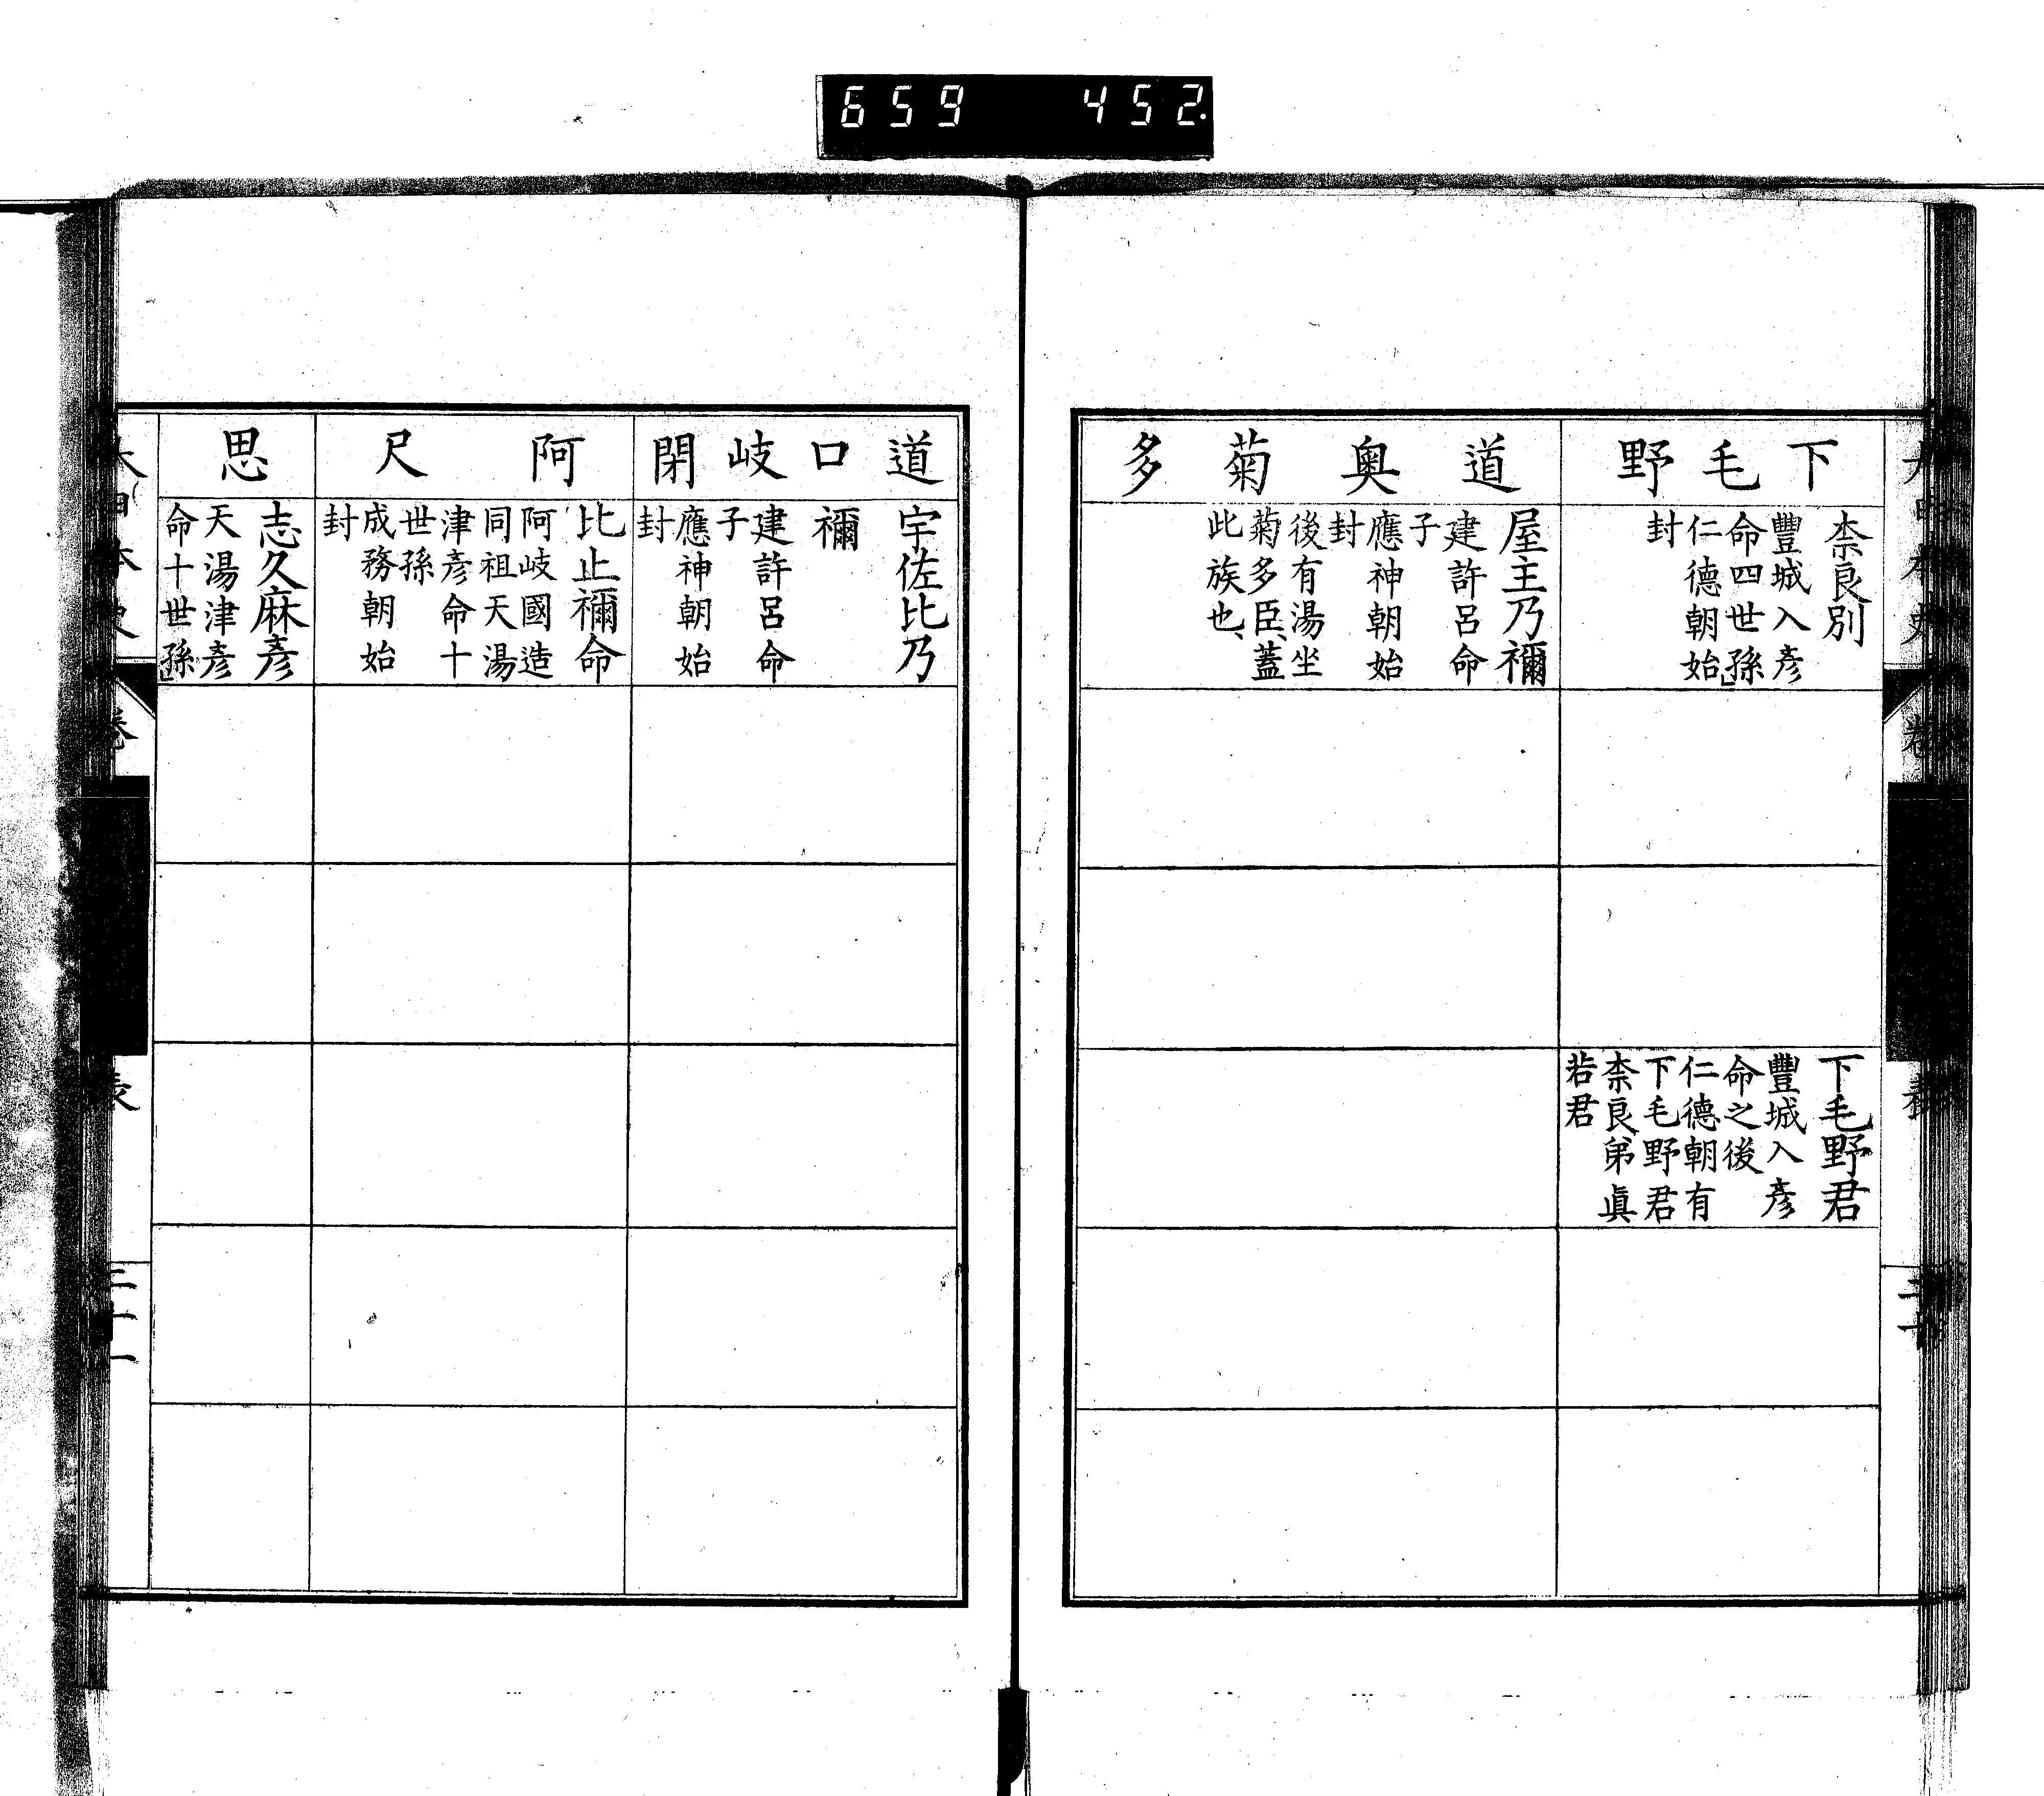 659 452
下毛野
柰良別
豐城入彥
命四世孫
仁德朝始
封
下毛野君
豐城入彥
命之後
仁德朝有
下毛野君
柰良弟眞
若君
道奧菊多
屋主乃禰
建許呂命
子
應神朝始
封
後有湯坐
菊多臣、蓋
此族也、
道口岐閉
宇佐比乃
禰
建許呂命
子
應神朝始
封
阿尺
比止禰命
阿岐國造
同祖天湯
津彥命十
世孫
成務朝始
封
思
志久麻彥
天湯津彥
命十世孫